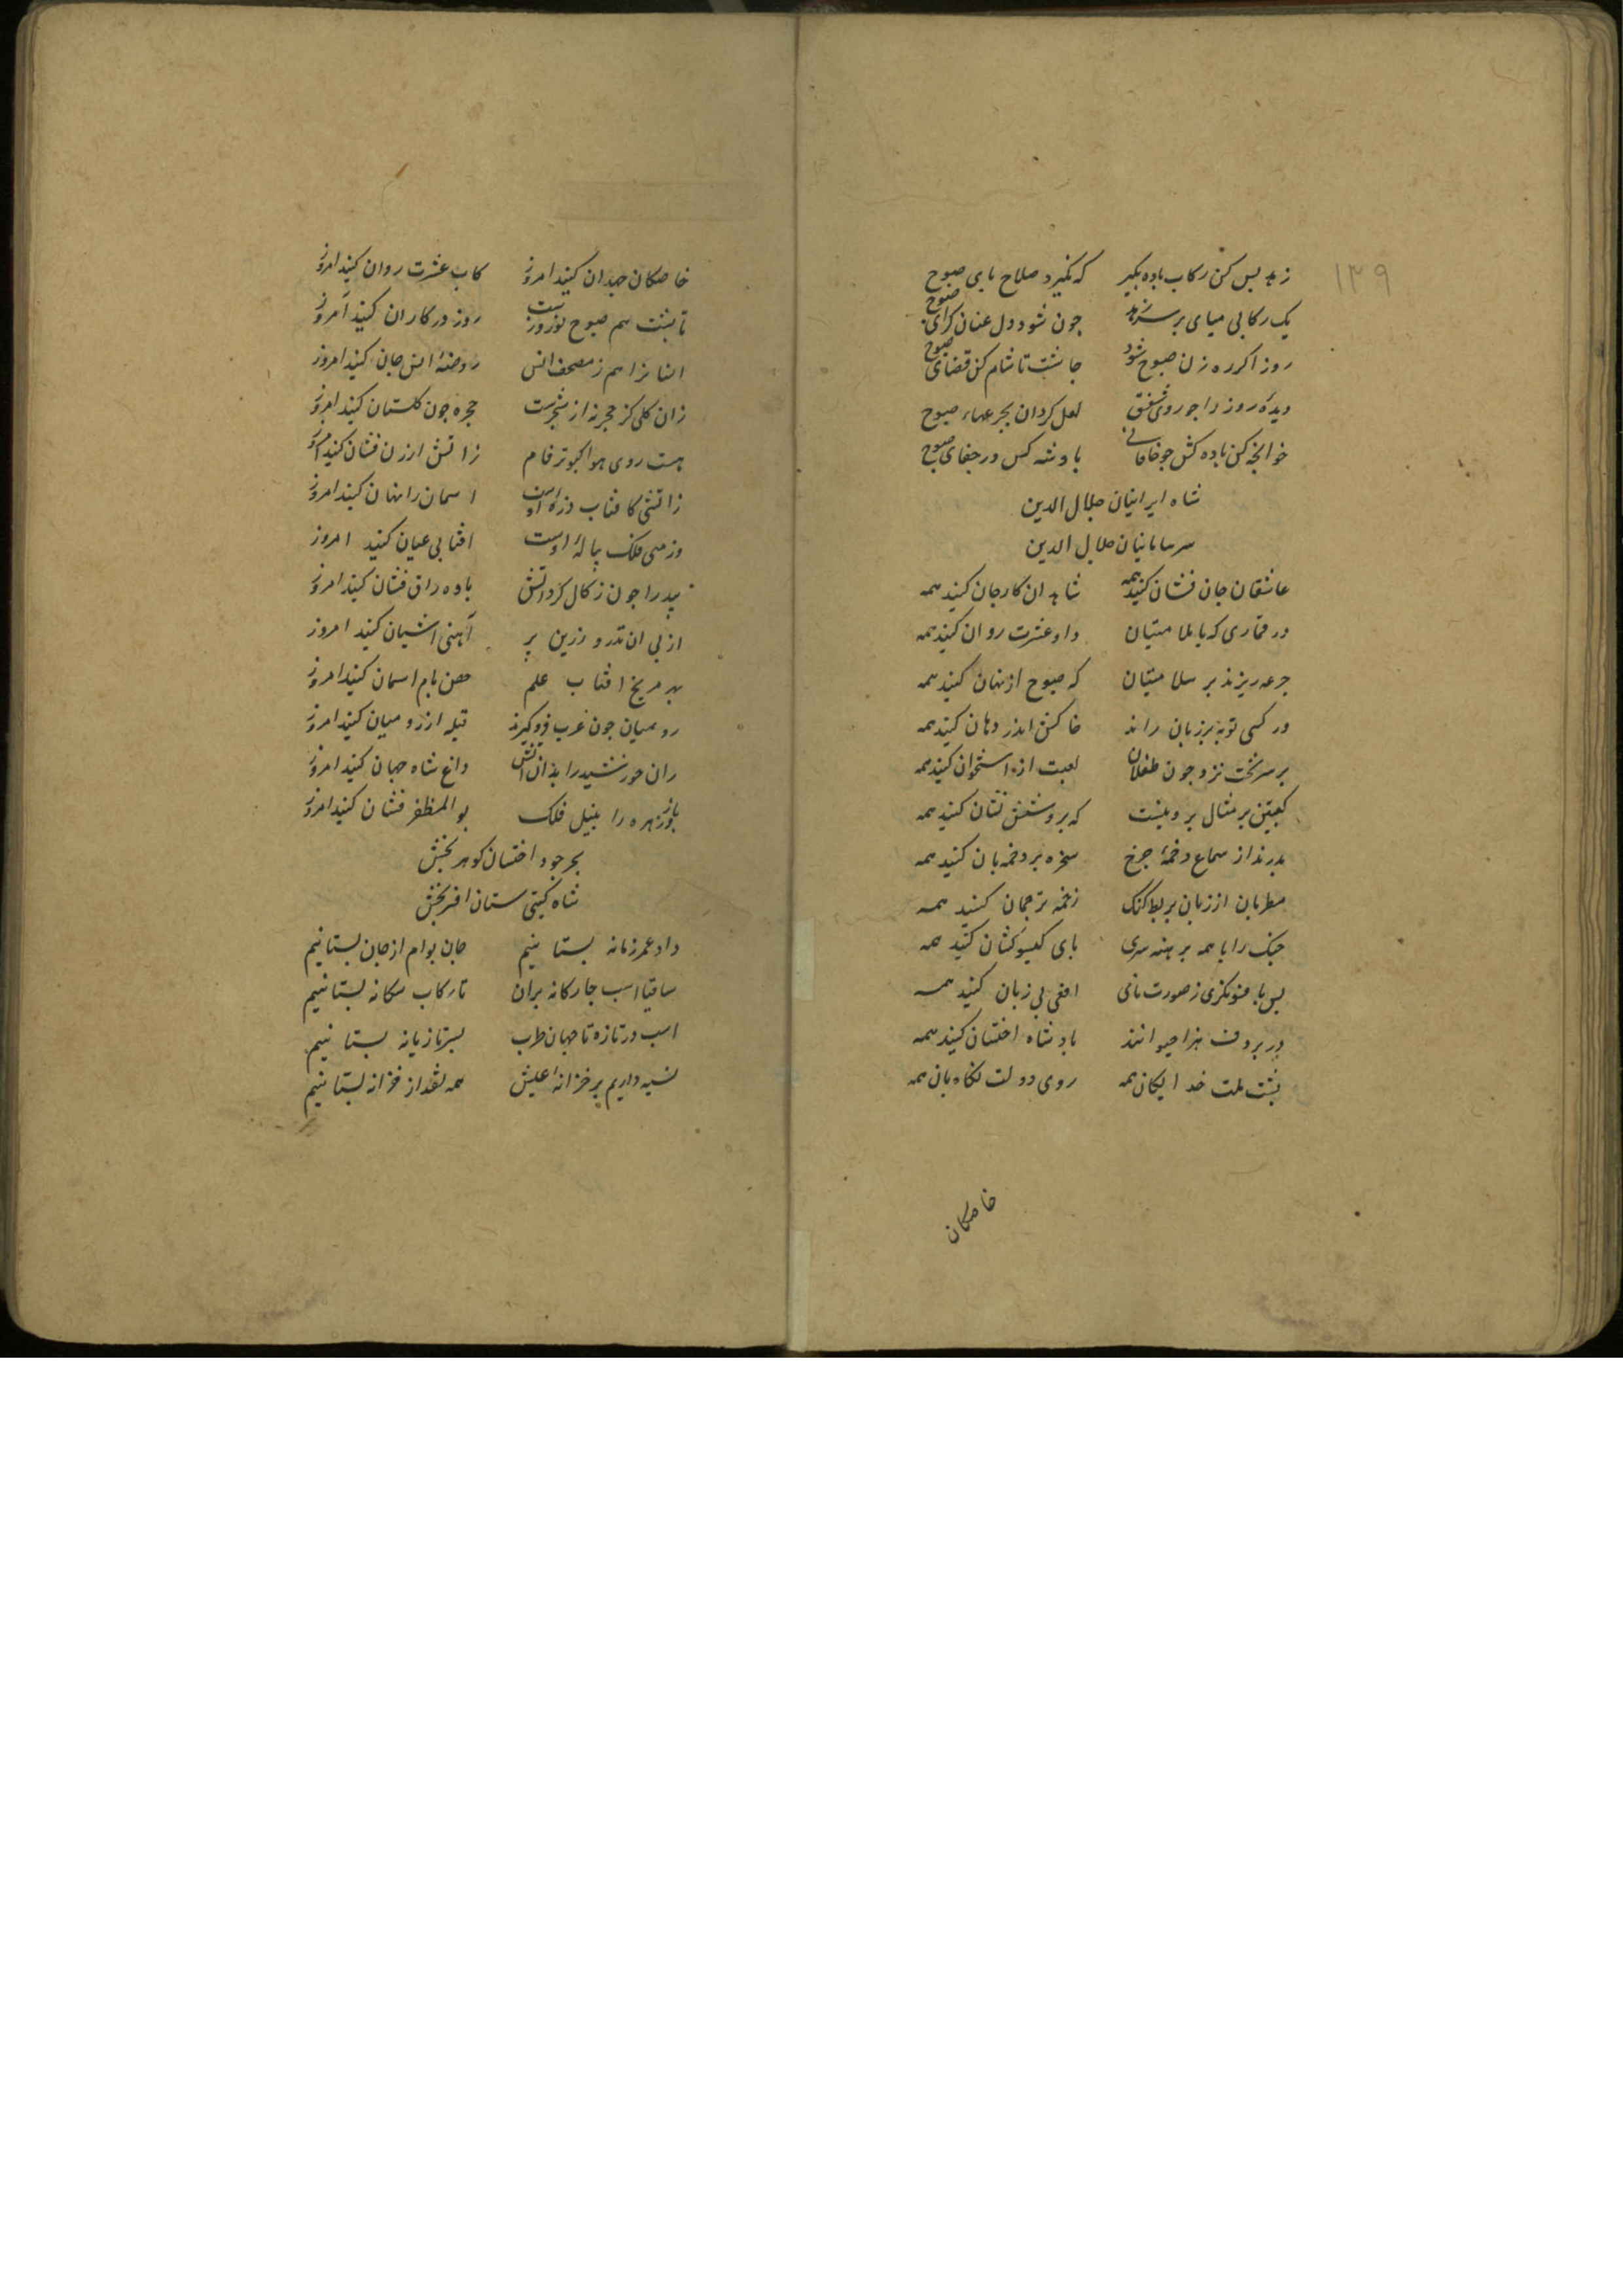 ۱۳۹
زهد بس کن رکاب باده بگیر که نگیرد صلاح بای صبوح
یک رکابی میای بر سر زهد جون شود دل عنان کرای صبوح
روز اکر ره زن صبوح شود جاشت تا شام کن قضای صبوح
دیده روز را جو روی شفق لعل کردان بجرعهاء صبوح
خوانجه کن باده کش جو خاقانی یاد شه کن در جفای صبوح
شاه ایرانیان جلال الدین
سر سامانیان جلال الدین
عاشقان جان فشان کنید همه شاهدان کار جان کنید همه
در قماری که با ملامتیان داو عشرت روان کنید همه
جرعه ریزند بر سلامتیان که صبوح از نهان کنید همه
ور کسی توبه بر زبان راند خاکش اندر دهان کنید همه
بر سر تخت نرد جون طفلان لعبت از استخوان کنید همه
کعبتین بر مثال بروینست که برو شش نشان کنید همه
بدرند از سماع دخمهٔ جرخ سخره بر دخمه بان کنید همه
مطربان از زبان بربط کنک زخمه ترجمان کنید همه
جنک را با همه برهنه سری بای کیسو کشان کنید همه
بس بافسونکری ز صورت نای افعی بی زبان کنید همه
در بر دف هزار حیوانند یاد شاه اخستان کنید همه
بشت ملت خدایکان همه روی دولت نکاه بان همه
خاصکان
خاصکان جهدان کنید امروز کاب عشرت روان کنید امروز
تا بشت هم صبوح نوروزست روز در کار ان کنید امروز
انسانرا هم ز مصحف انس روضهٔ انس جان کنید امروز
زان کلی کز حجر نه از شجرست حجره جون کلستان کنید امروز
هست روی هوا کبوتر فام ز اتش ارزن فشان کنید امروز
ز اتشی کافتاب ذره اوست اسمان را نهان کنید امروز
وز میی فلک پیالهٔ اوست افتابی عیان کنید امروز
بید را جون زکال کرد اتش باده راق فشان کنید امروز
از بی ان تذرو زرین بر آهنی اشیان کنید امروز
بهر مریخ افتاب علم حصن بام اسمان کنید امروز
رومیان جون عرب فرو کیرند قبله از رومیان کنید امروز
ران خورشید را بدان اتش داغ شاه جهان کنید امروز
باز زهره را بنیل فلک بوالمظفر فشان کنید امروز
بحر جود اخستان کوهر بخش
شاه کیتی ستان افسر بخش
داد عمر ز زمانه بستانیم جان بوام از جهان بستانیم
ساقیا اسب جارکانه بران تا رکاب سکانه بستانیم
اسب در تازه تا جهان طرب بسر تازیانه بستانیم
نسیه داریم بر خزانهٔ عیش همه نقد از خزانه بستانیم